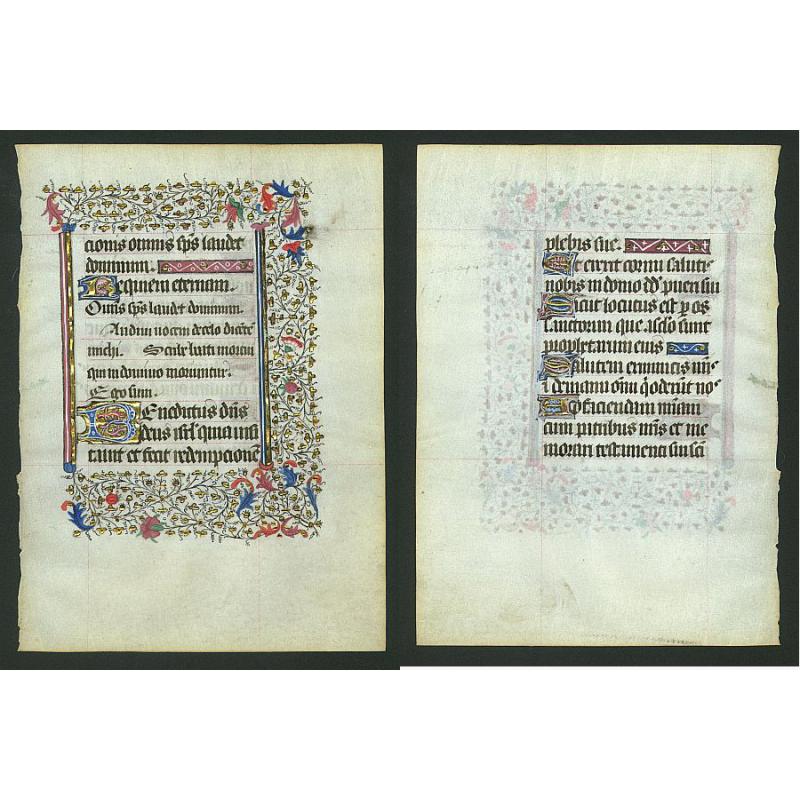 cionis omnis sps laudet
dominum.
Requiem eternam.
Omis sps laudet dominum.
Audiui uocem de celo dicete
michi. Scribe beati mortui
qui in domino moriuntur.
Ego sum.
Benedictus dns
deus isrl quia uisi
tauit et fecit redempcione
plebis sue
Et erexit cornu saluti
nobis in domo dd pueri sui
Sicut locutus est p os
sanctorum que a seclo sunt
prophetarum eius
Salutem ex inimicis nris
et de manu oim q oderut nos
Ad faciendam miam
cum patribus nris et me
morari testamenti sui sci